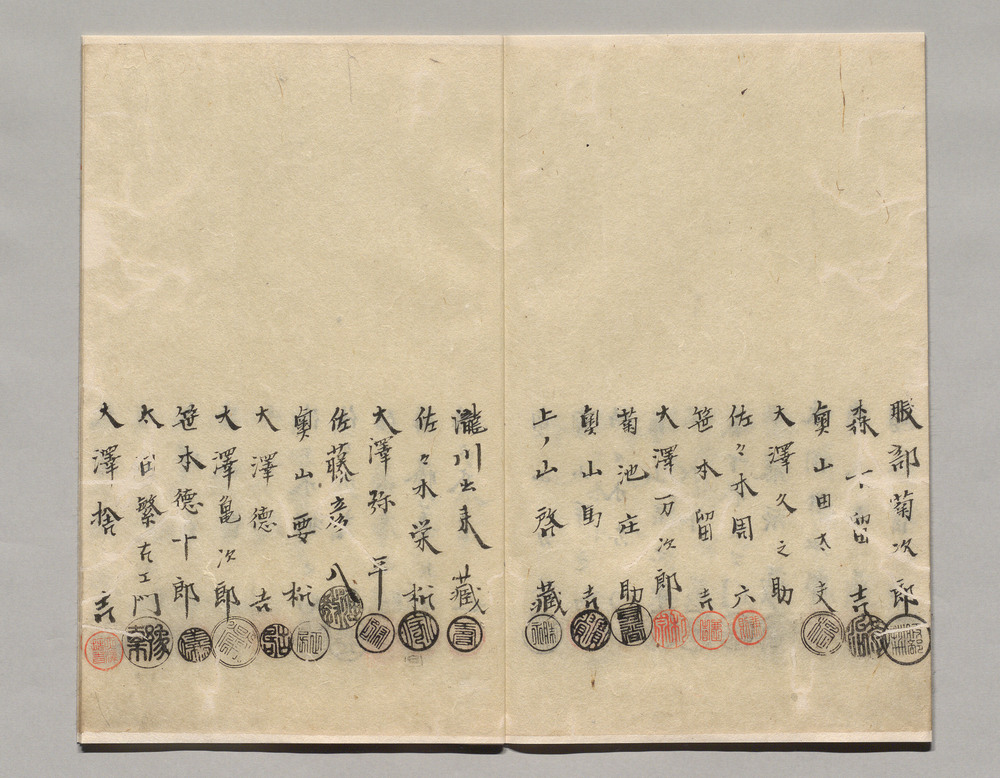 服部菊次郎
森下留吉
奥山田太夫
大澤久之助
佐々木周六
笹木留吉
大澤万次郎
菊池庄助
奥山馬吉
上ノ山啓藏
瀧川出来藏
佐々木栄松
大澤弥平
佐藤彦八
奥山要松
大澤德吉
大澤亀次郎
笹木德十郎
太田繁左エ門
大澤捨吉